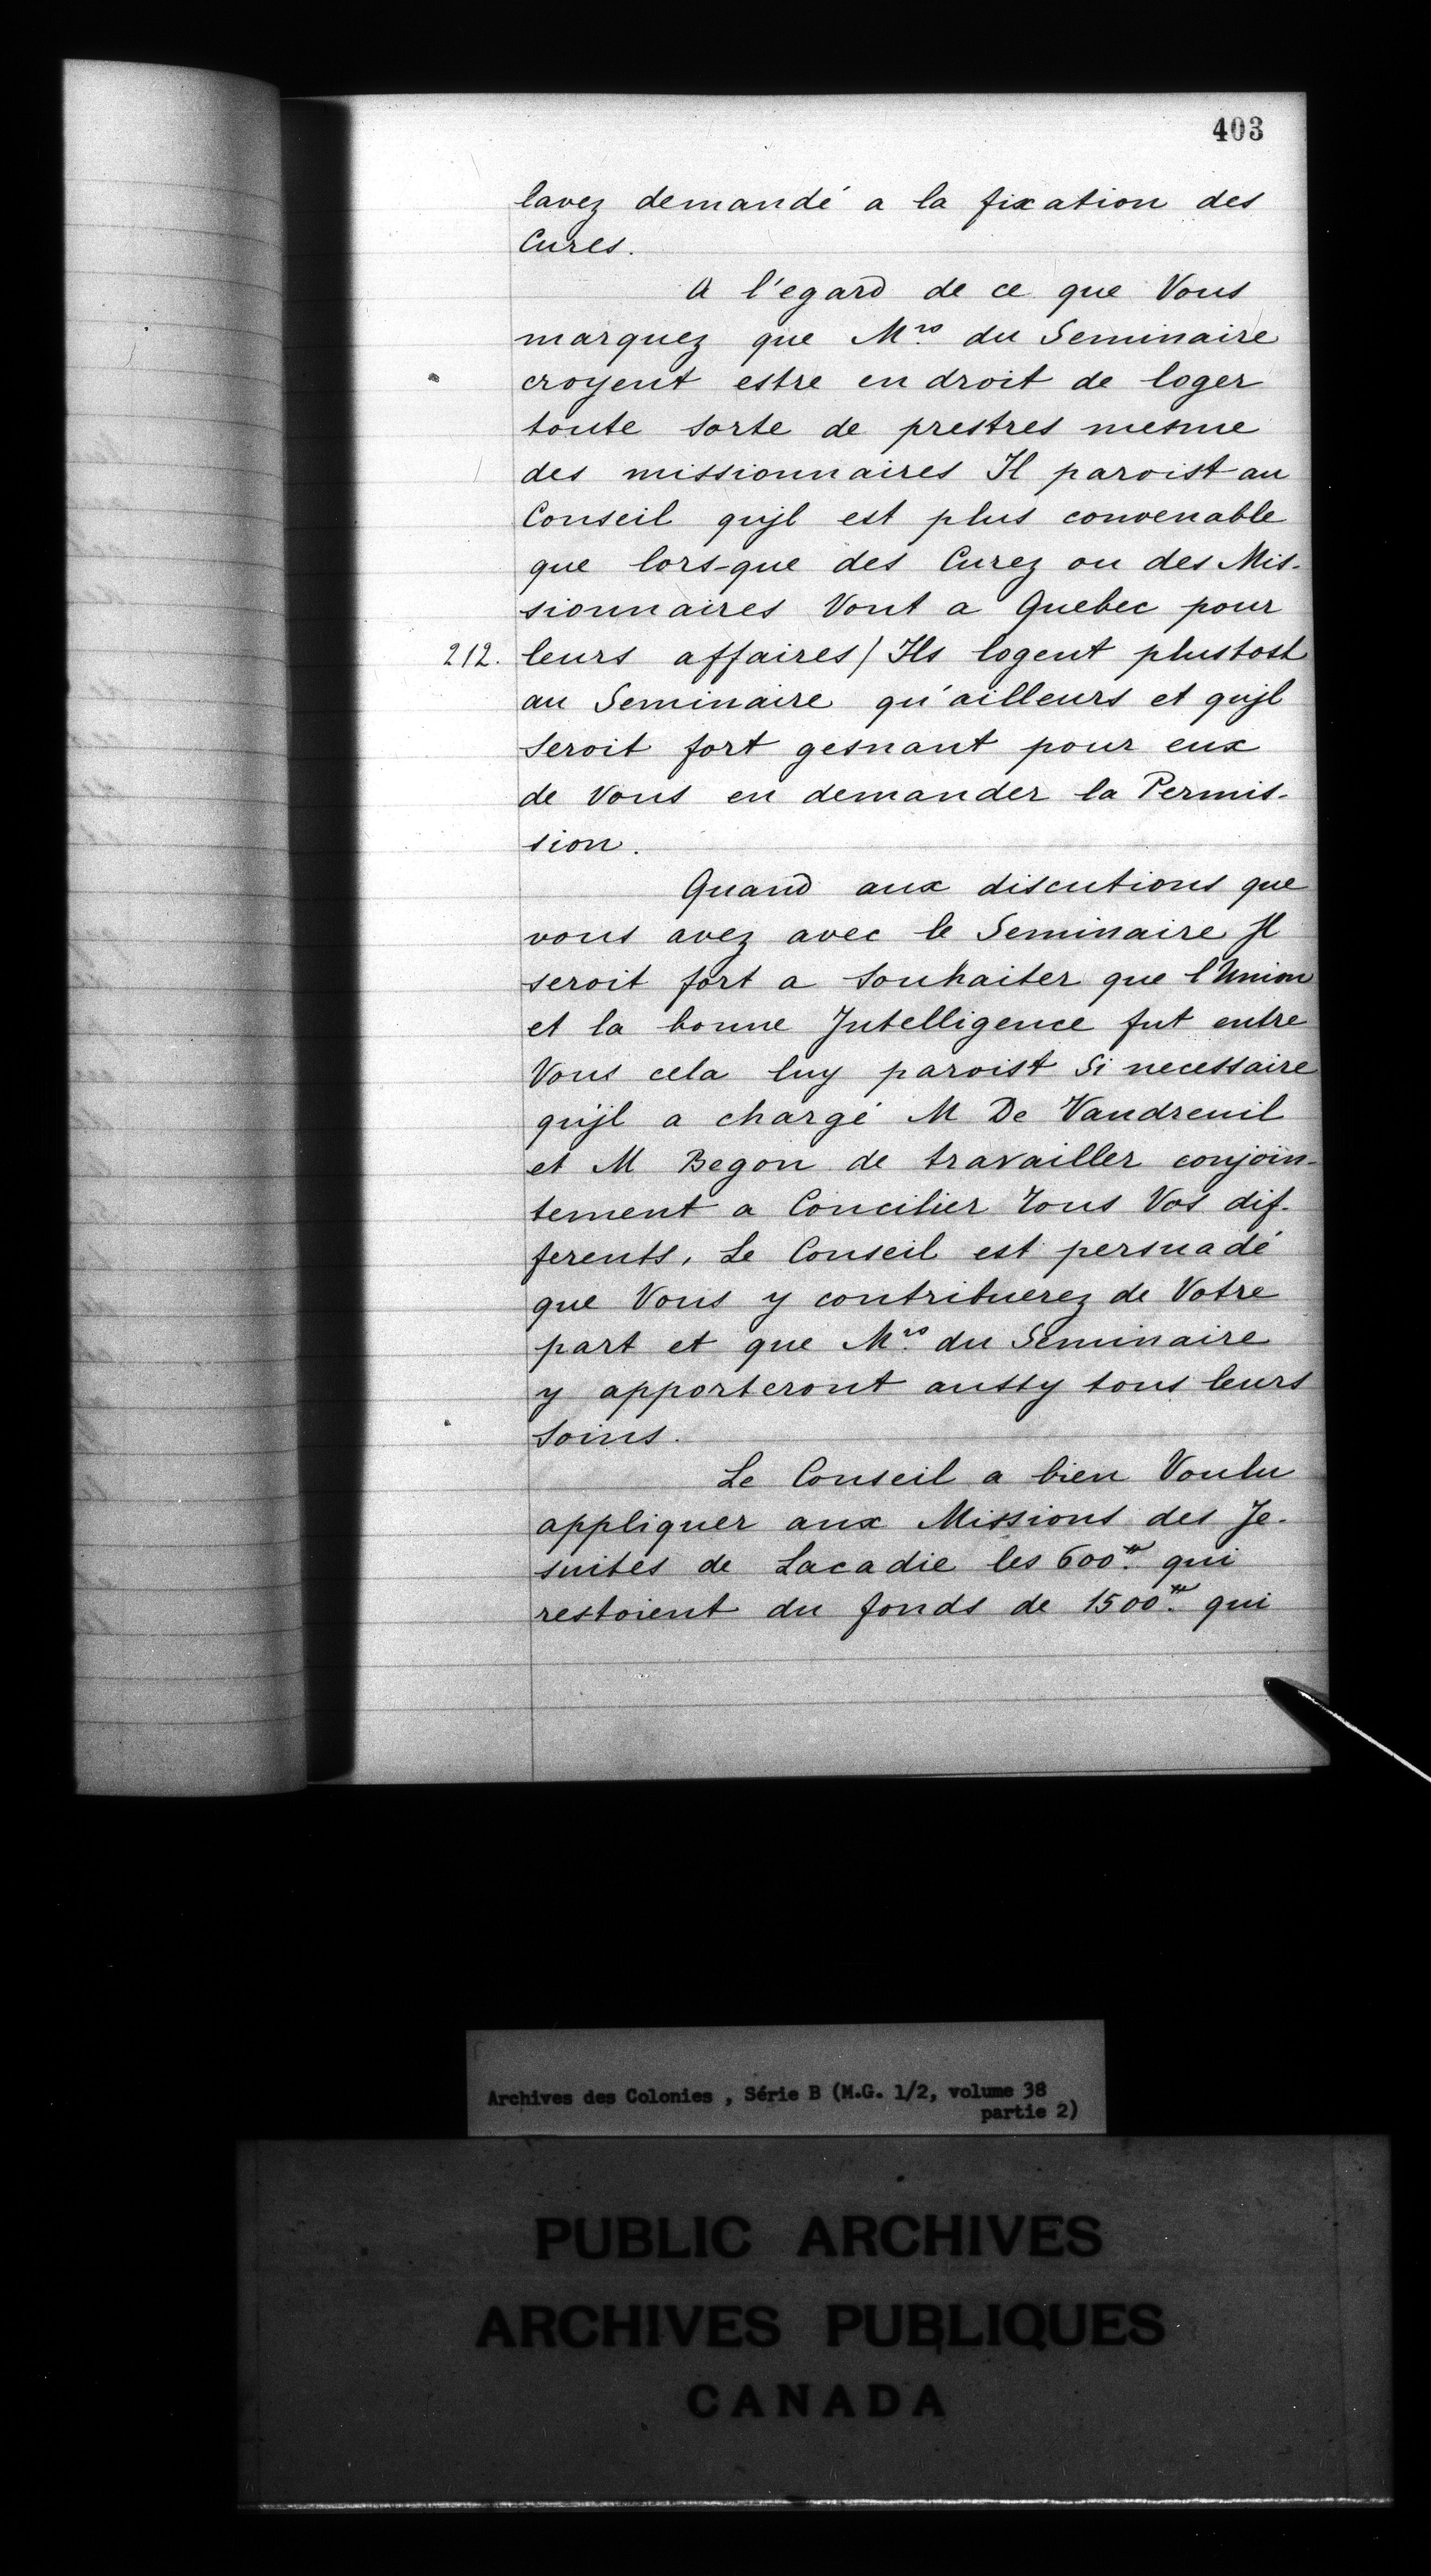 403
lavez demandé a la fixation des
Cures.
A l'egard de ce que Vous
marquez que Mrs. du Seminaire
croyent estre en droit de loger
toute sorte de prestres mesme
des missionnaires Il paroist au
Conseil qujl est plus convenable
que lors-que des Curez ou des Mis-
sionnaires Vont a Quebec pour
212. leurs affaires / Ils logent plustost
au Seminaire qu'ailleurs et qujl
seroit fort gesnant pour eux
de Vous en demander la Permis-
sion.
Quand aux discutions que
vous avez avec le Seminaire Jl
seroit fort a souhaiter que l'Union
et la bonne Jntelligence fut entre
Vous cela luy paroist si necessaire
qujl a chargé M De Vaudreuil
et M Begon de travailler conjoin-
tement a Concilier Tous Vos dif-
ferents, Le Conseil est persuadé
que Vous y contribuerez de Votre
part et que Mrs. du Seminaire
y apporteront aussy tous leurs
soins.
Le Conseil a bien Voulu
appliquer aux Missions des Je-
suites de Lacadie les 600tt. qui
restoient du fonds de 1500tt. qui
Archives des Colonies , Série B (M.G. 1/2, volume 38
partie 2)
PUBLIC ARCHIVES
ARCHIVES PUBLIQUES
CANADA